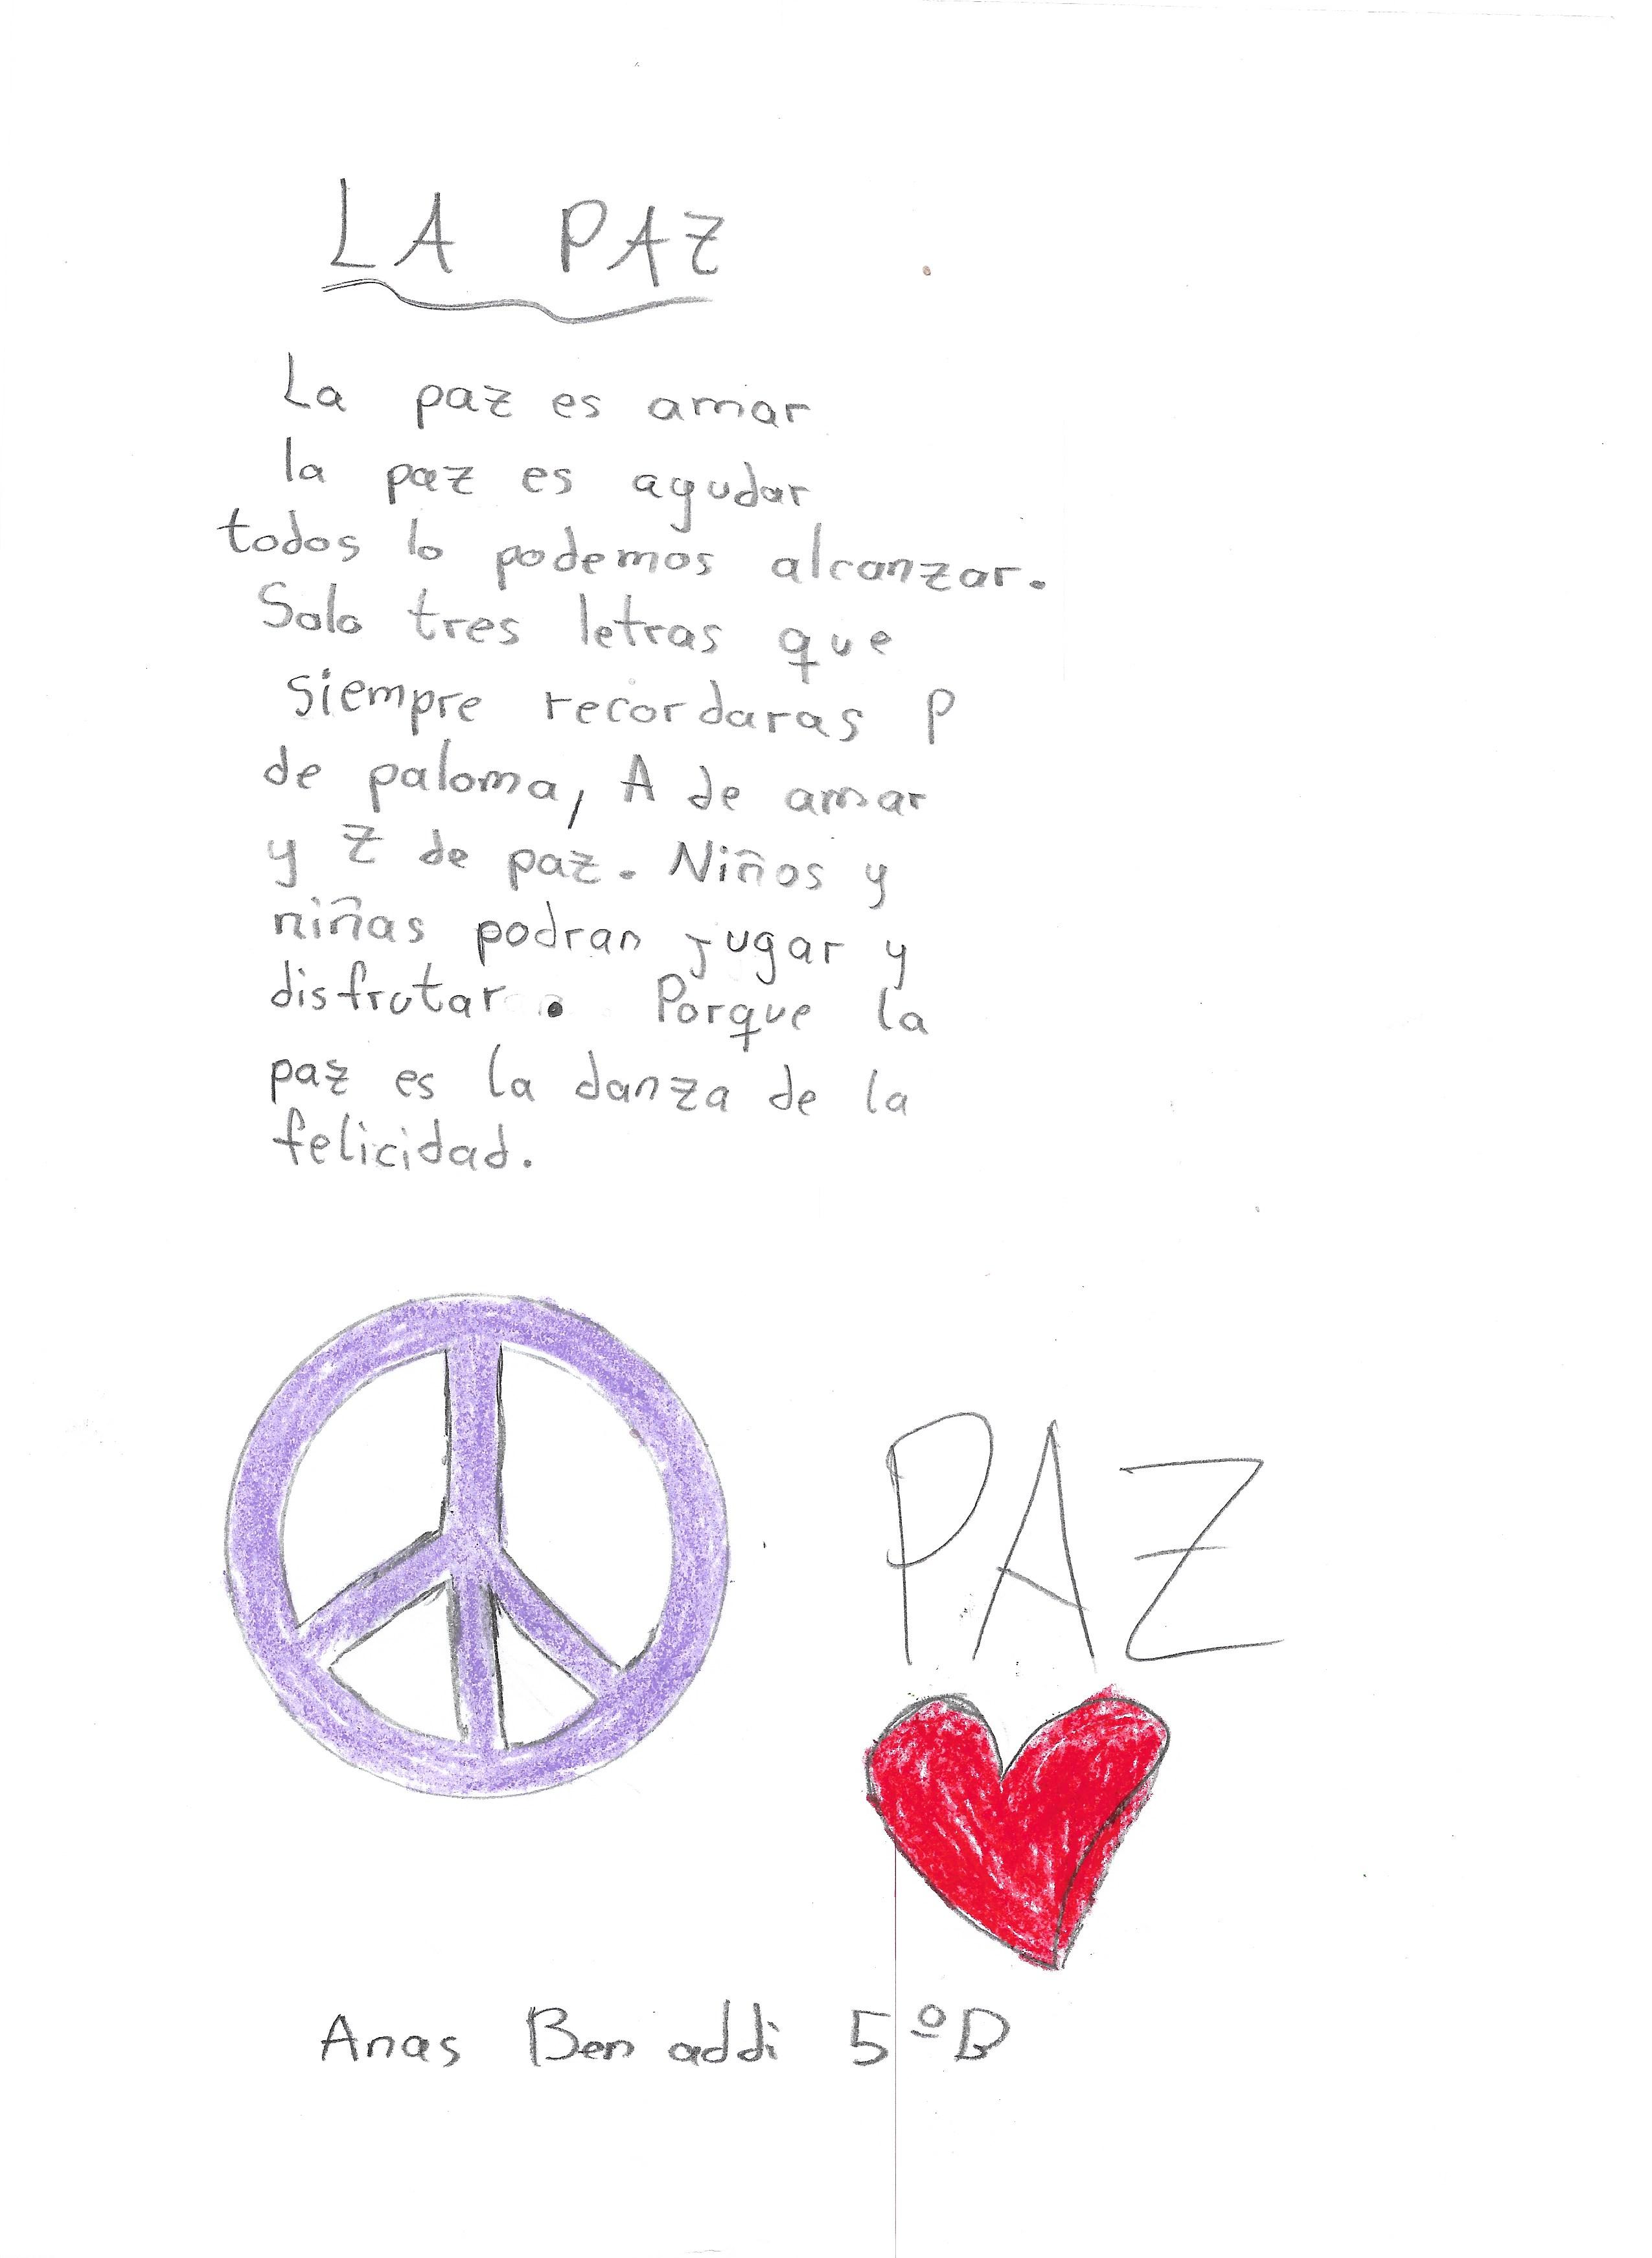 LA PAZ
La paz es amar
la paz es ayudar
todos lo podemos alcanzar.
Solo tres letras que
siempre recordaras P
de paloma, A de amar
y Z de paz. Niños y
niñas podran jugar y
disfrutar. Porque la
paz es la danza de la
felicidad.
PAZ
Anas Ben addi 5ºB